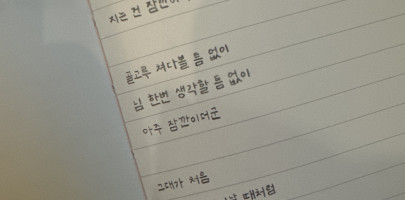 지는 건 잠깐이
골고루 쳐다볼 틈 없이
님 한번 생각할 틈 없이
아주 잠깐이더군
그대가 처음
때처럼